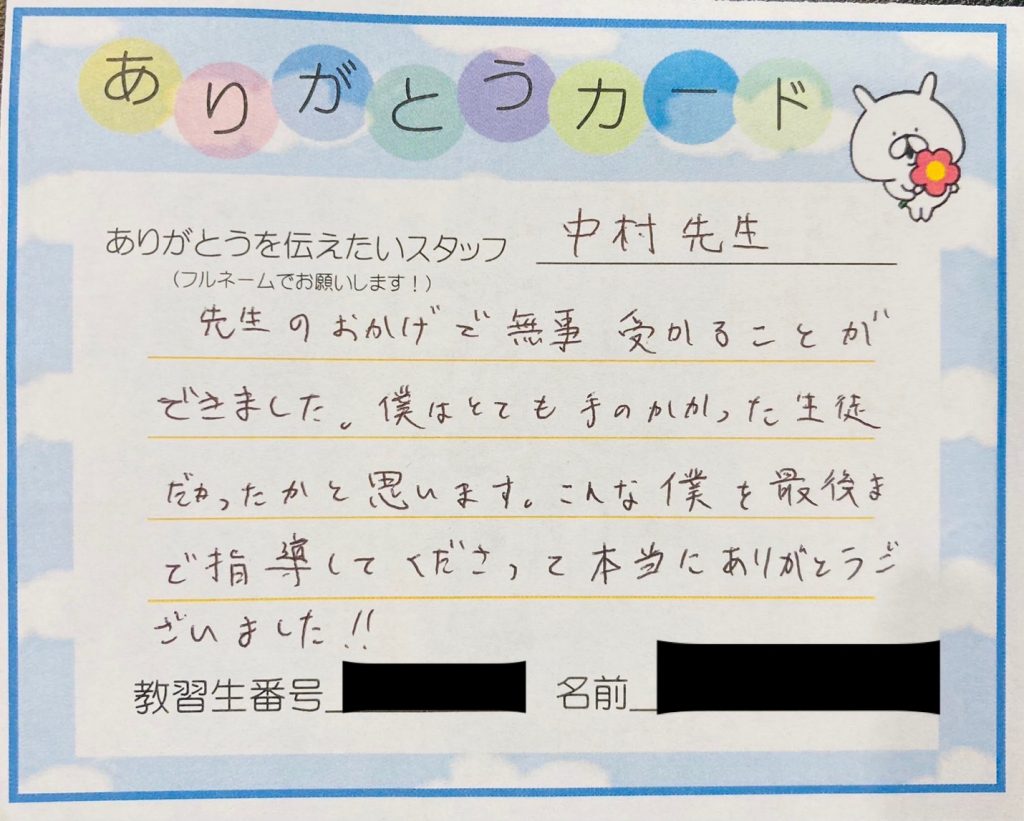 ありがとうカード
ありがとうを伝えたいスタッフ 中村先生
(フルネームでお願いします!)
先生のおかげで無事 受かることが
できました。僕はとても手のかかった生徒
だったかと思います。こんな僕を最後ま
で指導してくださって本当にありがとうご
ざいました!!
教習生番号 名前